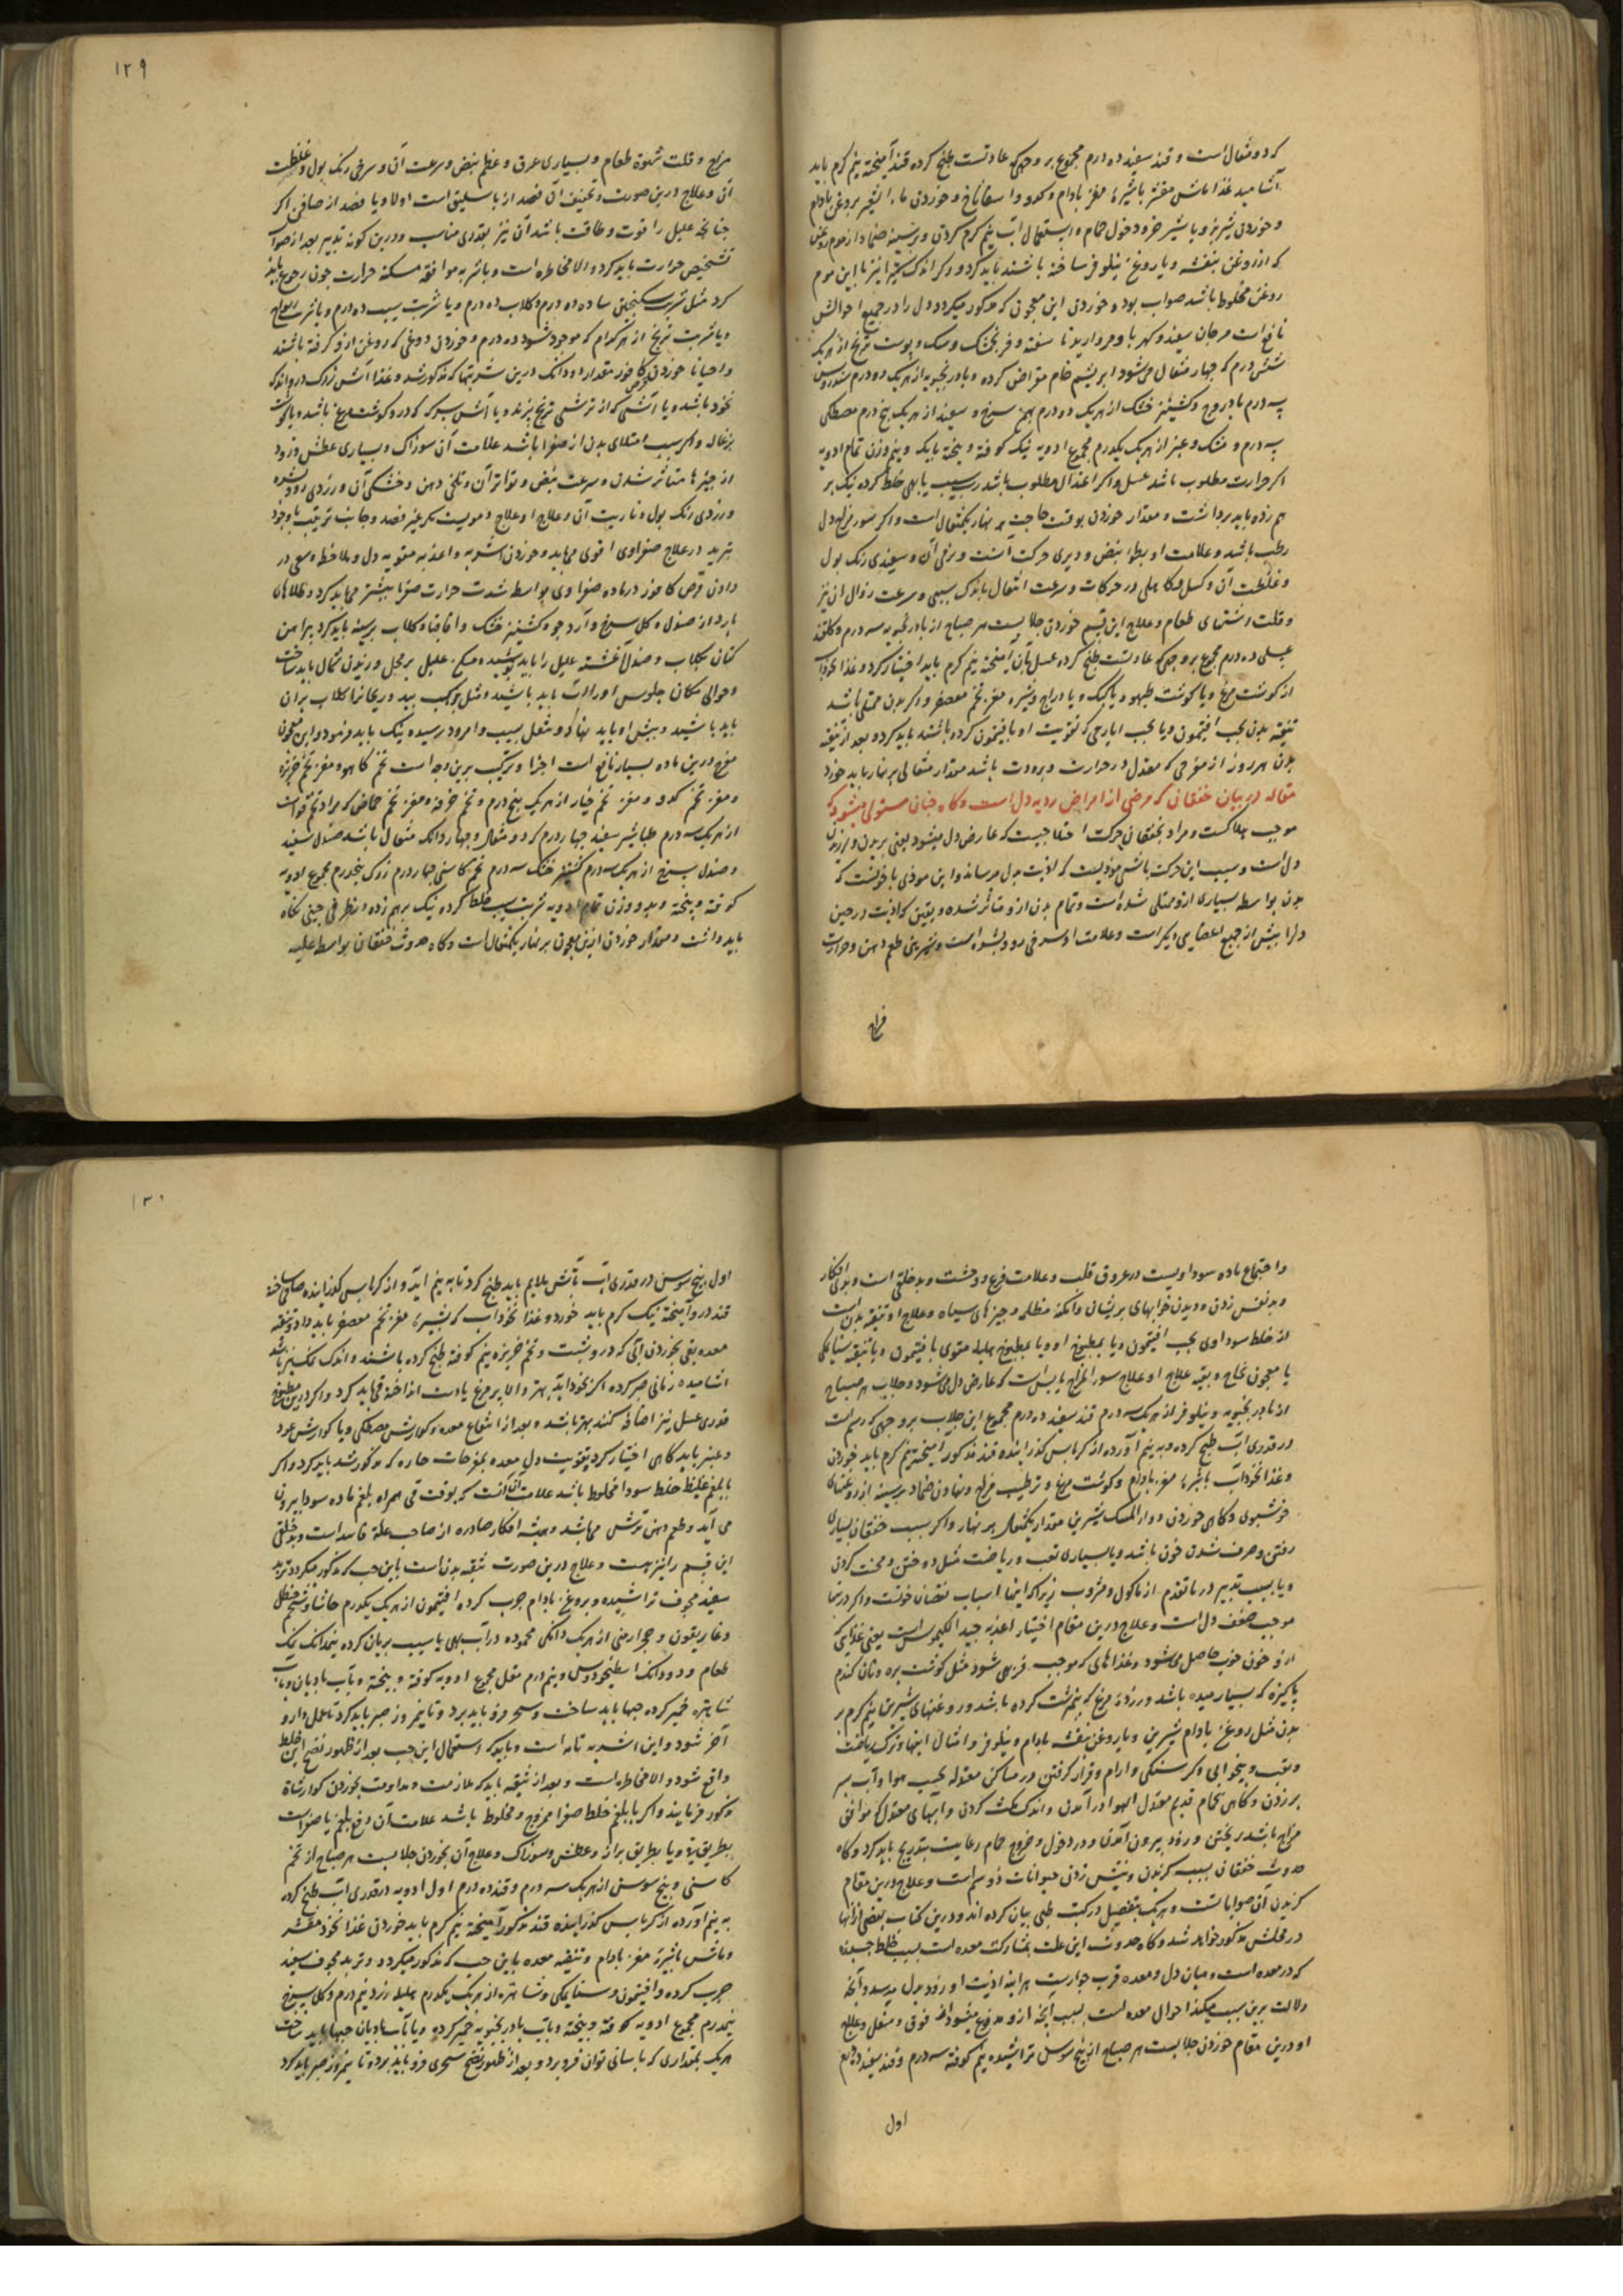 که دو مثقال است و قند سفید ده درم مجموع بر وجهی که عادتست طبخ کرده قند آمیخته نیم گرم باید
آشامید غذا ماش مقشر باشیره مغز بادام و کدو و اسفاناخ و خوردن ماء الشعیر بروغن بادام
و خوردن شیر بز و یا شیر خر و دخول حمام و استعمال آب نیم گرم کردن و بر سینه ضماد از موم روغن
که از روغن بنفشه و یا روغن نیلوفر ساخته باشند باید کرد و اگر اندک نیز با این موم
روغن مخلوط باشد صواب بود و خوردن این معجون که مذکور میگردد دل را در جمیع احوالش
نافع است مرجان سفید و کهربا و مروارید نا سفته و فرنجمشک و مشک و پوست ترنج از هر یک
شش درم که چهار مثقال می‌شود ابریشم خام مقراض کرده و بادرنجبویه از هر یک ده درم
سه درم بادروج و کشنیز خشک از هر یک دو درم بهمن سرخ و سفید از هر یک پنج درم مصطکی
سه درم و مشک و عنبر از هر یک یکدرم مجموع ادویه نیک کوفته و بیخته با یک و نیم وزن تمام ادویه
اگر حرارت مطلوب باشد عسل و اگر اعتدال مطلوب باشد رب سیب یا بهی خلط کرده نیک بر
هم زده باید برداشت و مقدار خوردن بوقت حاجت بر نهار یکمثقال است و اگر سوء مزاج دل
رطب باشد و علامت او بطؤ نبض و دیری حرکت آنست و نرمی آن و سفیدی رنک بول
و غلظت آن و کسل و کاهلی در حرکات و سرعت انتقال باندک سببی و سرعت زوال آن نیز
و قلت اشتهای طعام و علاج این قسم خوردن جلابیست هر صباح از بادرنجبویه سه درم و گلقند
عسلی ده درم مجموع بر وجهی که عادتست طبخ کرده عسل بآن آمیخته نیم گرم باید اختیار کرد و غذا نخوداب
از گوشت مرغ و یا گوشت طیهو و یا کبک و یا دراج و شیره مغز تخم معصفر و اگر بدن ممتلی باشد
تنقیه بدن بحب افتیمون و یا بحب ایارجی که تقویت او بافتیمون کرده باشند باید کرد و بعد از تنقیه
بدن هر روز از مفرحی که معتدل در حرارت و برودت باشد مقدار مثقالی بر نهار باید خورد
مقاله در بیان خفقان که مرضی از امراض ردیه دل است و گاه چنان مستولی میشود که
موجب هلاکست و مراد بخفقان حرکت اختلاجیست که عارض دل میشود یعنی پریدن و لرزیدن
دل است و سبب این حرکت باشی موذیست که اذیت بدل میرساند و این موذی یا خونست که
بدن بواسطه بسیاری از و ممتلی شده است و تمام بدن از و متأثر شده و یقین که اذیت در حین
دل را بیش از جمیع اعضای دیگر است و علامت او سرخی رو و بشره است و شیرینی طعم دهن و حرارت
مزاج
۱۲۹
مزاج و قلت شهوة طعام و بسیاری عرق و عظم نبض و سرعت آن و سرخی رنک بول و غلظت
آن و علاج درین صورت و تخفیف آن فصد از باسلیق است اولا و یا فصد از صافن اگر
چنانچه علیل را قوت و طاقت باشد آن نیز بقدری مناسب و درین گونه تدبیر بعد از صواب
تشخیص حرارت باید کرد و الا مخاطره است و باشربه موافقه مسکنه حرارت چون رجوع باید
کرد مثل شربت سکنجبین ساده ده درم و گلاب ده درم و یا شربت سیب ده درم و یا شربت
و یا شربت ترنج از هر کدام که موجود شود ده درم و خوردن دوغی که روغن ازو گرفته باشند
و احیانا خوردن قرص کافور مقدار دو دانک درین شربتها که مذکور شد و غذا آش زرک در و اندک
نخود باشد و یا آشی که از ترشی ترنج پزند و یا آش سرکه که در و گوشت مرغ باشد و یا گوشت
بزغاله و اگر سبب امتلای بدن از صفرا باشد علامت آن سوزاک و بسیاری عطش و زود
از چیزها متأثر شدن و سرعت نبض و تواتر آن و تلخی دهن و خشکی آن و زردی رو و بشره
و زردی رنک بول و ناریت آن و علاج او علاج دمویست بغیر فصد و جانب ترتیب با وجود
تبرید در علاج صفراوی اقوی می‌باید و خوردن اشربه و اغذیه مقویه دل و ملاحظه و سعی در
دادن قرص کافور در ماده صفراوی بواسطه شدت حرارت صفرا بیشتر میباید کرد و طلاهای
بارد از صندل و گل سرخ و آرد جو و کشنیز خشک و اقاقیا و گلاب بر سینه باید کرد پیراهن
کتان بگلاب و صندل آغشته علیل را باید پوشید و علیل بر محل وزیدن شمال باید ساخت
و حوالی مکان جلوس او را آب باید پاشید و مثل برک بید و ریحان را گلاب بر آن
باید پاشید و پیش او باید نهاد و شغل سیب و امرود رسیده نیک باید فرمود و این معجون
مفرح درین ماده بسیار نافع است اجزا و ترکیب برین وجه است تخم کاهو و مغز تخم خربزه
و مغز تخم کدو و مغز تخم خیار از هر یک پنج درم و تخم خرفه و مغز تخم حماض که مراد تخم ترشه است
از هر یک سه درم طباشیر سفید چهار درم که دو مثقال و چهار دانک مثقال باشد صندل سفید
و صندل سرخ از هر یک سه درم کشنیز خشک سه درم تخم کاسنی چهار درم زرک پنجدرم مجموع ادویه
کوفته و بیخته و بدو وزن تمام ادویه شربت سیب خلط کرده نیک بر هم زده در ظرفی چینی نگاه
باید داشت و مقدار خوردن ازین معجون بر نهار یکمثقال است و گاه حدوث خفقان بواسطه غلبه
و اجتماع ماده سوداویست در عروق قلب و علامت فزع و وحشت و بدخلقی است و بدی افکار
و بد نفس زدن و دیدن خوابهای پریشان و امکنه مظلمه و چیزهای سیاه و علاج او تنقیه بدن است
از خلط سوداوی بحب افتیمون و یا بمطبوخ او و یا بمطبوخ هلیله مقوی بافتیمون و یا تنقیه سنا مکی
یا معجون نجاح و بقیه علاج او علاج سوء المزاج یابس است که عارض دل می‌شود و جلاب هر صباح
از بادرنجبویه و نیلوفر از هر یک سه درم قند سفید ده درم مجموع این جلاب بر وجهی که رسم است
در قدری آب طبخ کرده و به نیم آورده از کرباس گذرانیده قند مذکور آمیخته نیم گرم باید خوردن
و غذا نخوداب باشیره مغز بادام و گوشت مرغ و ترطیب مزاج و نهادن ضماد بر سینه از روغنهای
خوشبوی و گاهی خوردن دواء المسک شیرین مقدار یکمثقال بر نهار و اگر سبب خفقان بسیاری
رفتن و صرف شدن خون باشد و یا بسیاری تعب و ریاضت مثل دویدن و محنت کردن
و یا بسبب تدبیر در ما تقدم از ماکول و مشروب زیرا که اینها اسباب نقصان خونست و اکثر اینها
موجب ضعف دل است و علاج درین مقام اختیار اغذیه جید الکیموس است یعنی غذایی که
از و خون خوب حاصل می‌شود و غذاهای که موجب فربهی شود مثل گوشت بره و نان گندم
پاکیزه که بسیار میده باشد و زرده مرغ که نیم برشت کرده باشد و روغنهای شیرین نیم گرم بر
بدن مثل روغن بادام شیرین و یا روغن بنفشه بادام و نیلوفر و امثال اینها و ترک ریاضت
و تعب و بیخوابی و گرسنگی و آرام و قرار گرفتن در مساکن معتدله بحسب هوا و آب بر
بر زدن و گاهی بحمام قدیم معتدل الهوا در آمدن و اندک مکث کردن و آبهای معتدل که موافق
مزاج باشد ریختن و زود بیرون آمدن و در دخول و خروج حمام رعایت بتدریج باید کرد و گاه
حدوث خفقان بسبب گزیدن و نیش زدن حیوانات ذو سم است و علاج درین مقام
گزیدن آن حیوانانست و هر یک بتفصیل در کتب طبی بیان کرده‌اند و درین کتاب بعضی از آنها
در محلش مذکور خواهد شد و گاه حدوث این علت بمشارکت معده است بسبب خلط چسبنده
که در معده است و میان دل و معده قرب جواریست هر آینه اذیت او زود بدل میرسد و آنچه
دلالت برین سبب میکند احوال معده است بسبب آنچه از و مدفوع میشود از فوق و سفل و علاج
او درین مقام خوردن جلابیست هر صباح از بیخ سوسن تراشیده نیم کوفته سه درم و قند سفید ده درم
اول
۱۳۰
اول بیخ سوسن در قدری آب بآتش ملایم باید طبخ کرد تا به نیم آید و از کرباس گذرانیده صافی ساخته
قند در و آمیخته نیک گرم باید خورد و غذا نخوداب که بشیره مغز تخم معصفر باید داد و تنقیه
معده بقی بخوردن آبی که در و شبت و تخم خربزه نیم کوفته طبخ کرده باشند و اندک نمک نیز باشد
آشامیده زمانی صبر کرده اگر بخود آید بهتر و الا پر مرغ یا دست انداخته قی باید کرد و اگر درین مطبوخ
قدری عسل نیز اضافه کنند بهتر باشد و بعد از انتفاع معده گوارش مصطکی و یا گوارش عود
و عنبر باید گاهی اختیار کرد تقویت دل و معده بمفرحات حاره که مذکور شد باید کرد و اگر
با بلغم غلیظ خلط سودا مخلوط باشد علامت آنست که بوقت قی همراه بلغم ماده سودا بیرون
می آید و طعم دهن ترش میباشد و همیشه افکار صادره از صاحب علة فاسد است و بدخلقی
این قسم را نیز هست و علاج درین صورت تنقیه بدن است باین حب که مذکور میگردد تربد
سفید مجوف تراشیده و بروغن بادام چرب کرده افتیمون از هر یک یکدرم حاشا و شحم حنظل
و غاریقون و حجر ارمنی از هر یک دانکی محموده در آب بهی یا سیب بریان کرده نیمدانک نمک
طعام و دو دانک اسطوخودوس و نیم درم مقل مجموع ادویه کوفته و بیخته و بآب بادیان و یا بآب
شاهتره خمیر کرده حبها باید ساخت و سحر فرو باید برد و تا نیم روز صبر باید کرد تا عمل دارو
آخر شود و این شربه تامه است و باید که استعمال این حب بعد از ظهور نضج این خلط
واقع شود و الا مخاطره است و بعد از تنقیه باید که ملازمت و مداومت بخوردن گوارشات
مذکور فرمایند و اگر با بلغم خلط صفرا ممزوج و مخلوط باشد علامت آن دفع بلغم با صفراست
بطریق قی و یا بطریق براز و عطش و سوزاک و علاج آن بخوردن جلابیست هر صباح از تخم
کاسنی و بیخ سوسن از هر یک سه درم و قند ده درم اول ادویه در قدری آب طبخ کرده
به نیم آورده از کرباس گذرانیده قند مذکور آمیخته نیم گرم باید خوردن غذا نخود مقشر
و ماش باشیره مغز بادام و تنقیه معده باین حب که مذکور میگردد و تربد مجوف سفید
چرب کرده و افتیمون و سنا مکی و شاهتره از هر یک یکدرم هلیله زرد نیم درم و گل سرخ
نیمدرم مجموع ادویه کوفته و بیخته و بآب بادرنجبویه خمیر کرده و یا بآب بادیان حبها باید ساخت
هر یک بمقداری که باسانی توان فرو برد و بعد از ظهور نضج سحری فرو باید برد و تا نیمروز صبر باید کرد